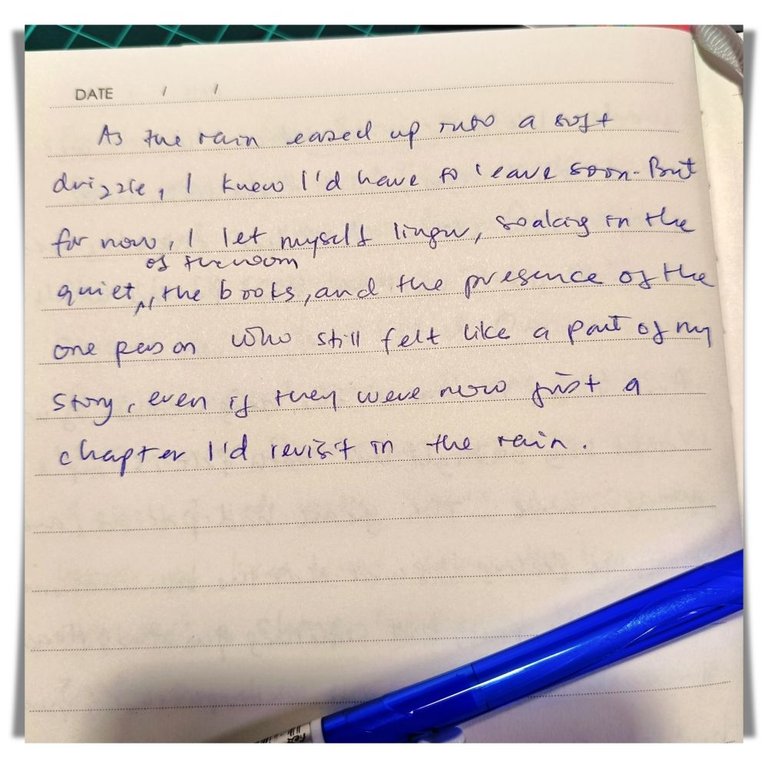 DATE / /
As the rain eased up into a soft
drizzle, I knew I'd have to leave soon. But
for now, I let myself linger, soaking in the
of the room
quiet, the books, and the presence of the
one person who still felt like a part of my
story, even if they were now just a
chapter I'd revisit in the rain.